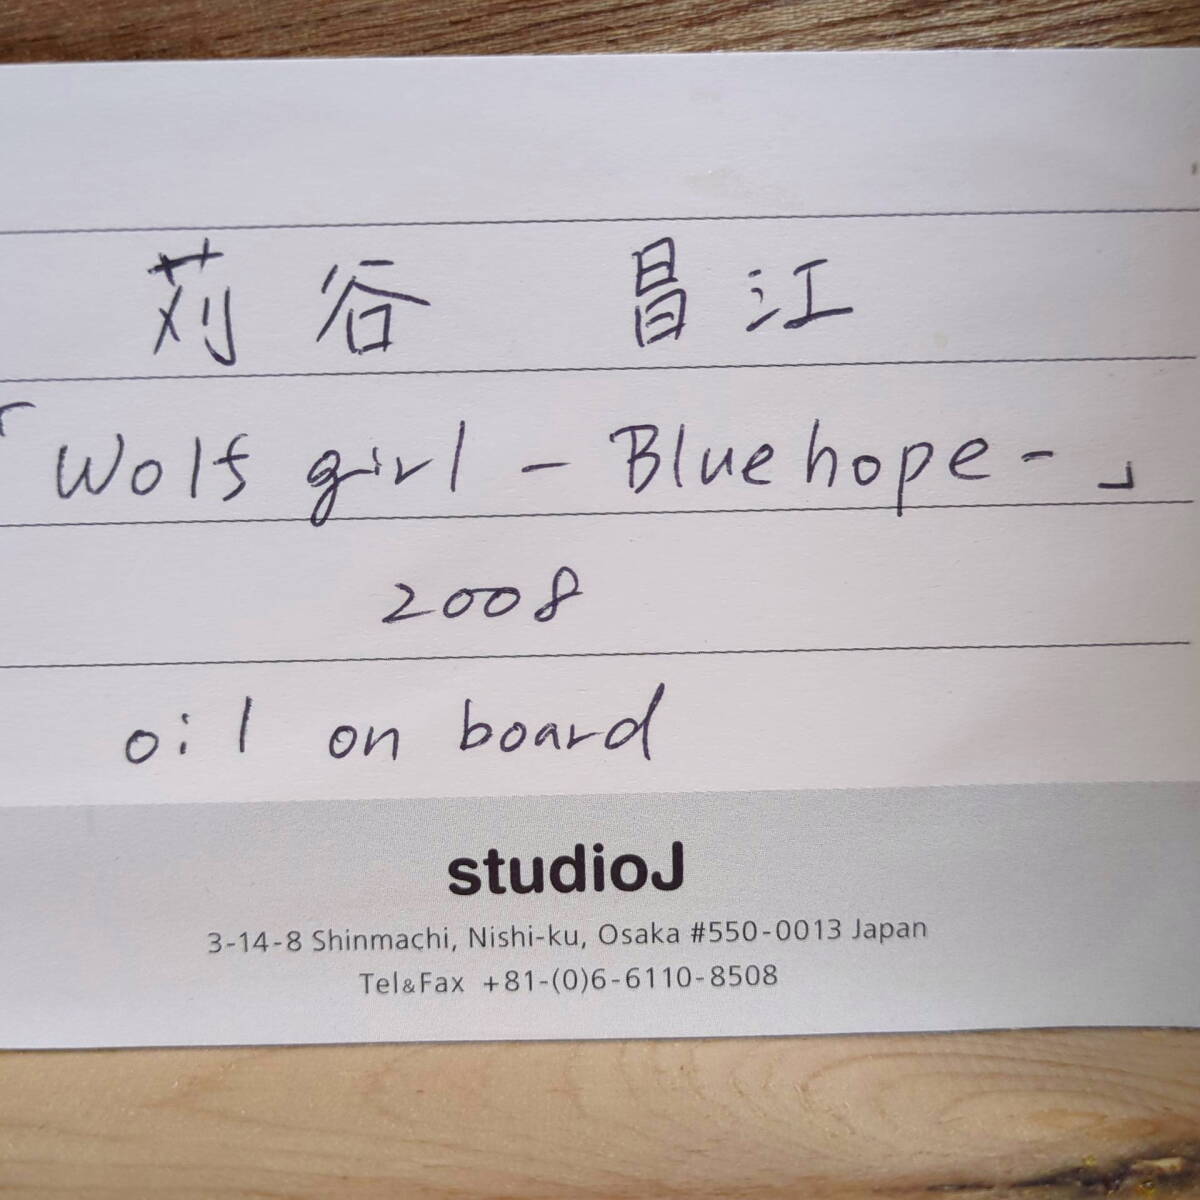 苅谷 昌江
「Wolf girl - Blue hope - 」
2008
oil on board
studioJ
3-14-8 Shinmachi, Nishi-ku, Osaka #550-0013 Japan
Tel&Fax +81-(0)6-6110-8508